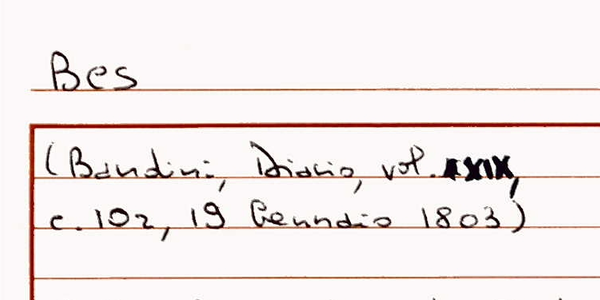 Bes
(Bandini, Diario, vol. XXIX,
c. 102, 19 Gennaio 1803)